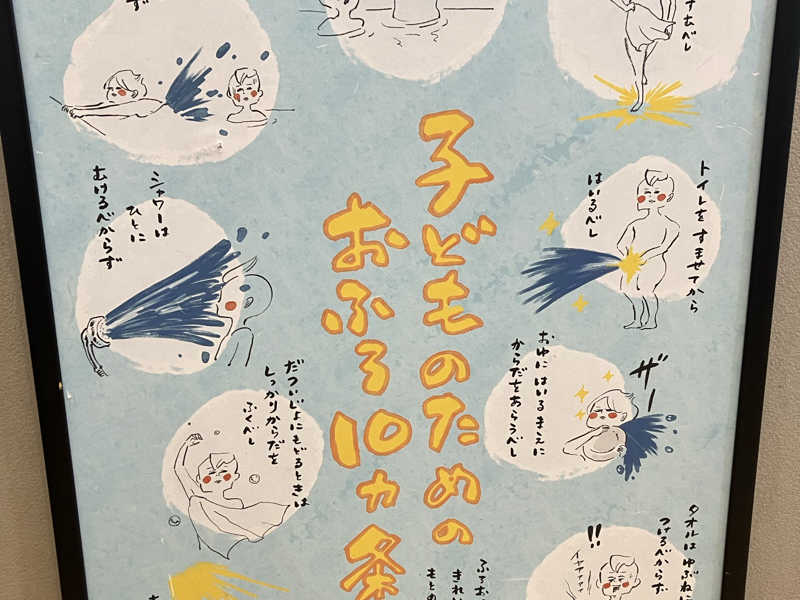 子どものための
おふろ10ヵ条
トイレを すませてから
はいるべし
ザー
おゆに はいる まえに
からだを あらうべし
タオルは ゆぶねに
つけるべからず
!!
イヤァァァァ
シャワーは
ひとに
むけるべからず
だついじょにもどるときは
しっかりからだを
ふくべし
ふろお
きれい
もとの